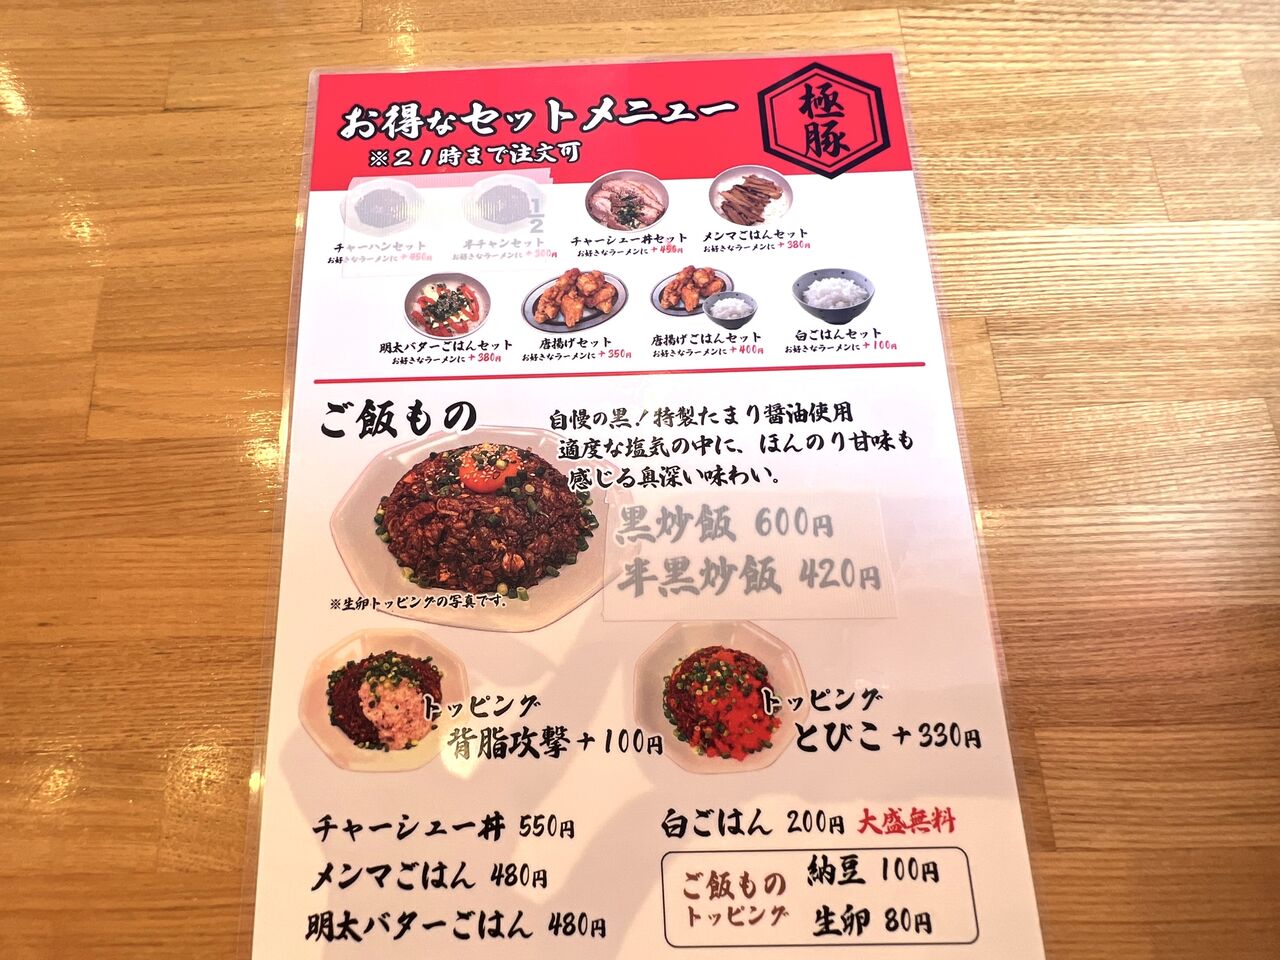 お得なセットメニュー
※21時まで注文可
極豚
チャーハンセット
お好きなラーメンに+450円
半チャンセット
お好きなラーメンに+300円
1/2
チャーシュー丼セット
お好きなラーメンに+450円
メンマごはんセット
お好きなラーメンに+380円
明太バターごはんセット
お好きなラーメンに+380円
唐揚げセット
お好きなラーメンに+350円
唐揚げごはんセット
お好きなラーメンに+400円
白ごはんセット
お好きなラーメンに+100円
ご飯もの
自慢の黒!特製たまり醤油使用
適度な塩気の中に、ほんのり甘味も
感じる奥深い味わい。
黒炒飯 600円
半黒炒飯 420円
※生卵トッピングの写真です。
トッピング
背脂攻撃+100円
トッピング
とびこ+330円
チャーシュー丼 550円
メンマごはん 480円
明太バターごはん 480円
白ごはん 200円 大盛無料
ご飯もの
トッピング
納豆 100円
生卵 80円